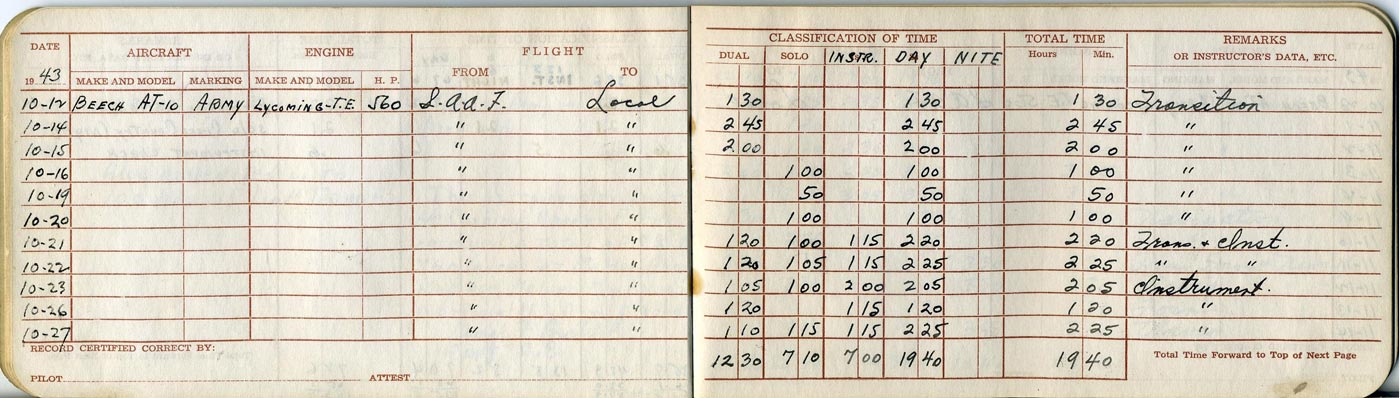 DATE AIRCRAFT ENGINE FLIGHT CLASSIFICATION OF TIME TOTAL TIME REMARKS
1943 MAKE AND MODEL MARKING MAKE AND MODEL H. P. FROM TO DUAL SOLO INSTR. DAY NITE Hours Min. OR INSTRUCTOR'S DATA, ETC.
10-12 BEECH AT-10 ARMY LYCOMING-T.E. 560 L.A.A.F. Local 1 30 1 30 1 30 Transition
10-14 " " 2 45 2 45 2 45 "
10-15 " " 2 00 2 00 2 00 "
10-16 " " 1 00 1 00 1 00 "
10-19 " " 50 50 50 "
10-20 " " 1 00 1 00 1 00 "
10-21 " " 1 20 1 00 1 15 2 20 2 20 Trans. + Inst.
10-22 " " 1 20 1 05 1 15 2 25 2 25 " "
10-23 " " 1 05 1 00 2 00 2 05 2 05 Instrument.
10-26 " " 1 20 1 15 1 20 1 20 "
10-27 " " 1 10 1 15 1 15 2 25 2 25 "
RECORD CERTIFIED CORRECT BY: 12 30 7 10 7 00 19 40 19 40 Total Time Forward to Top of Next Page
PILOT ATTEST